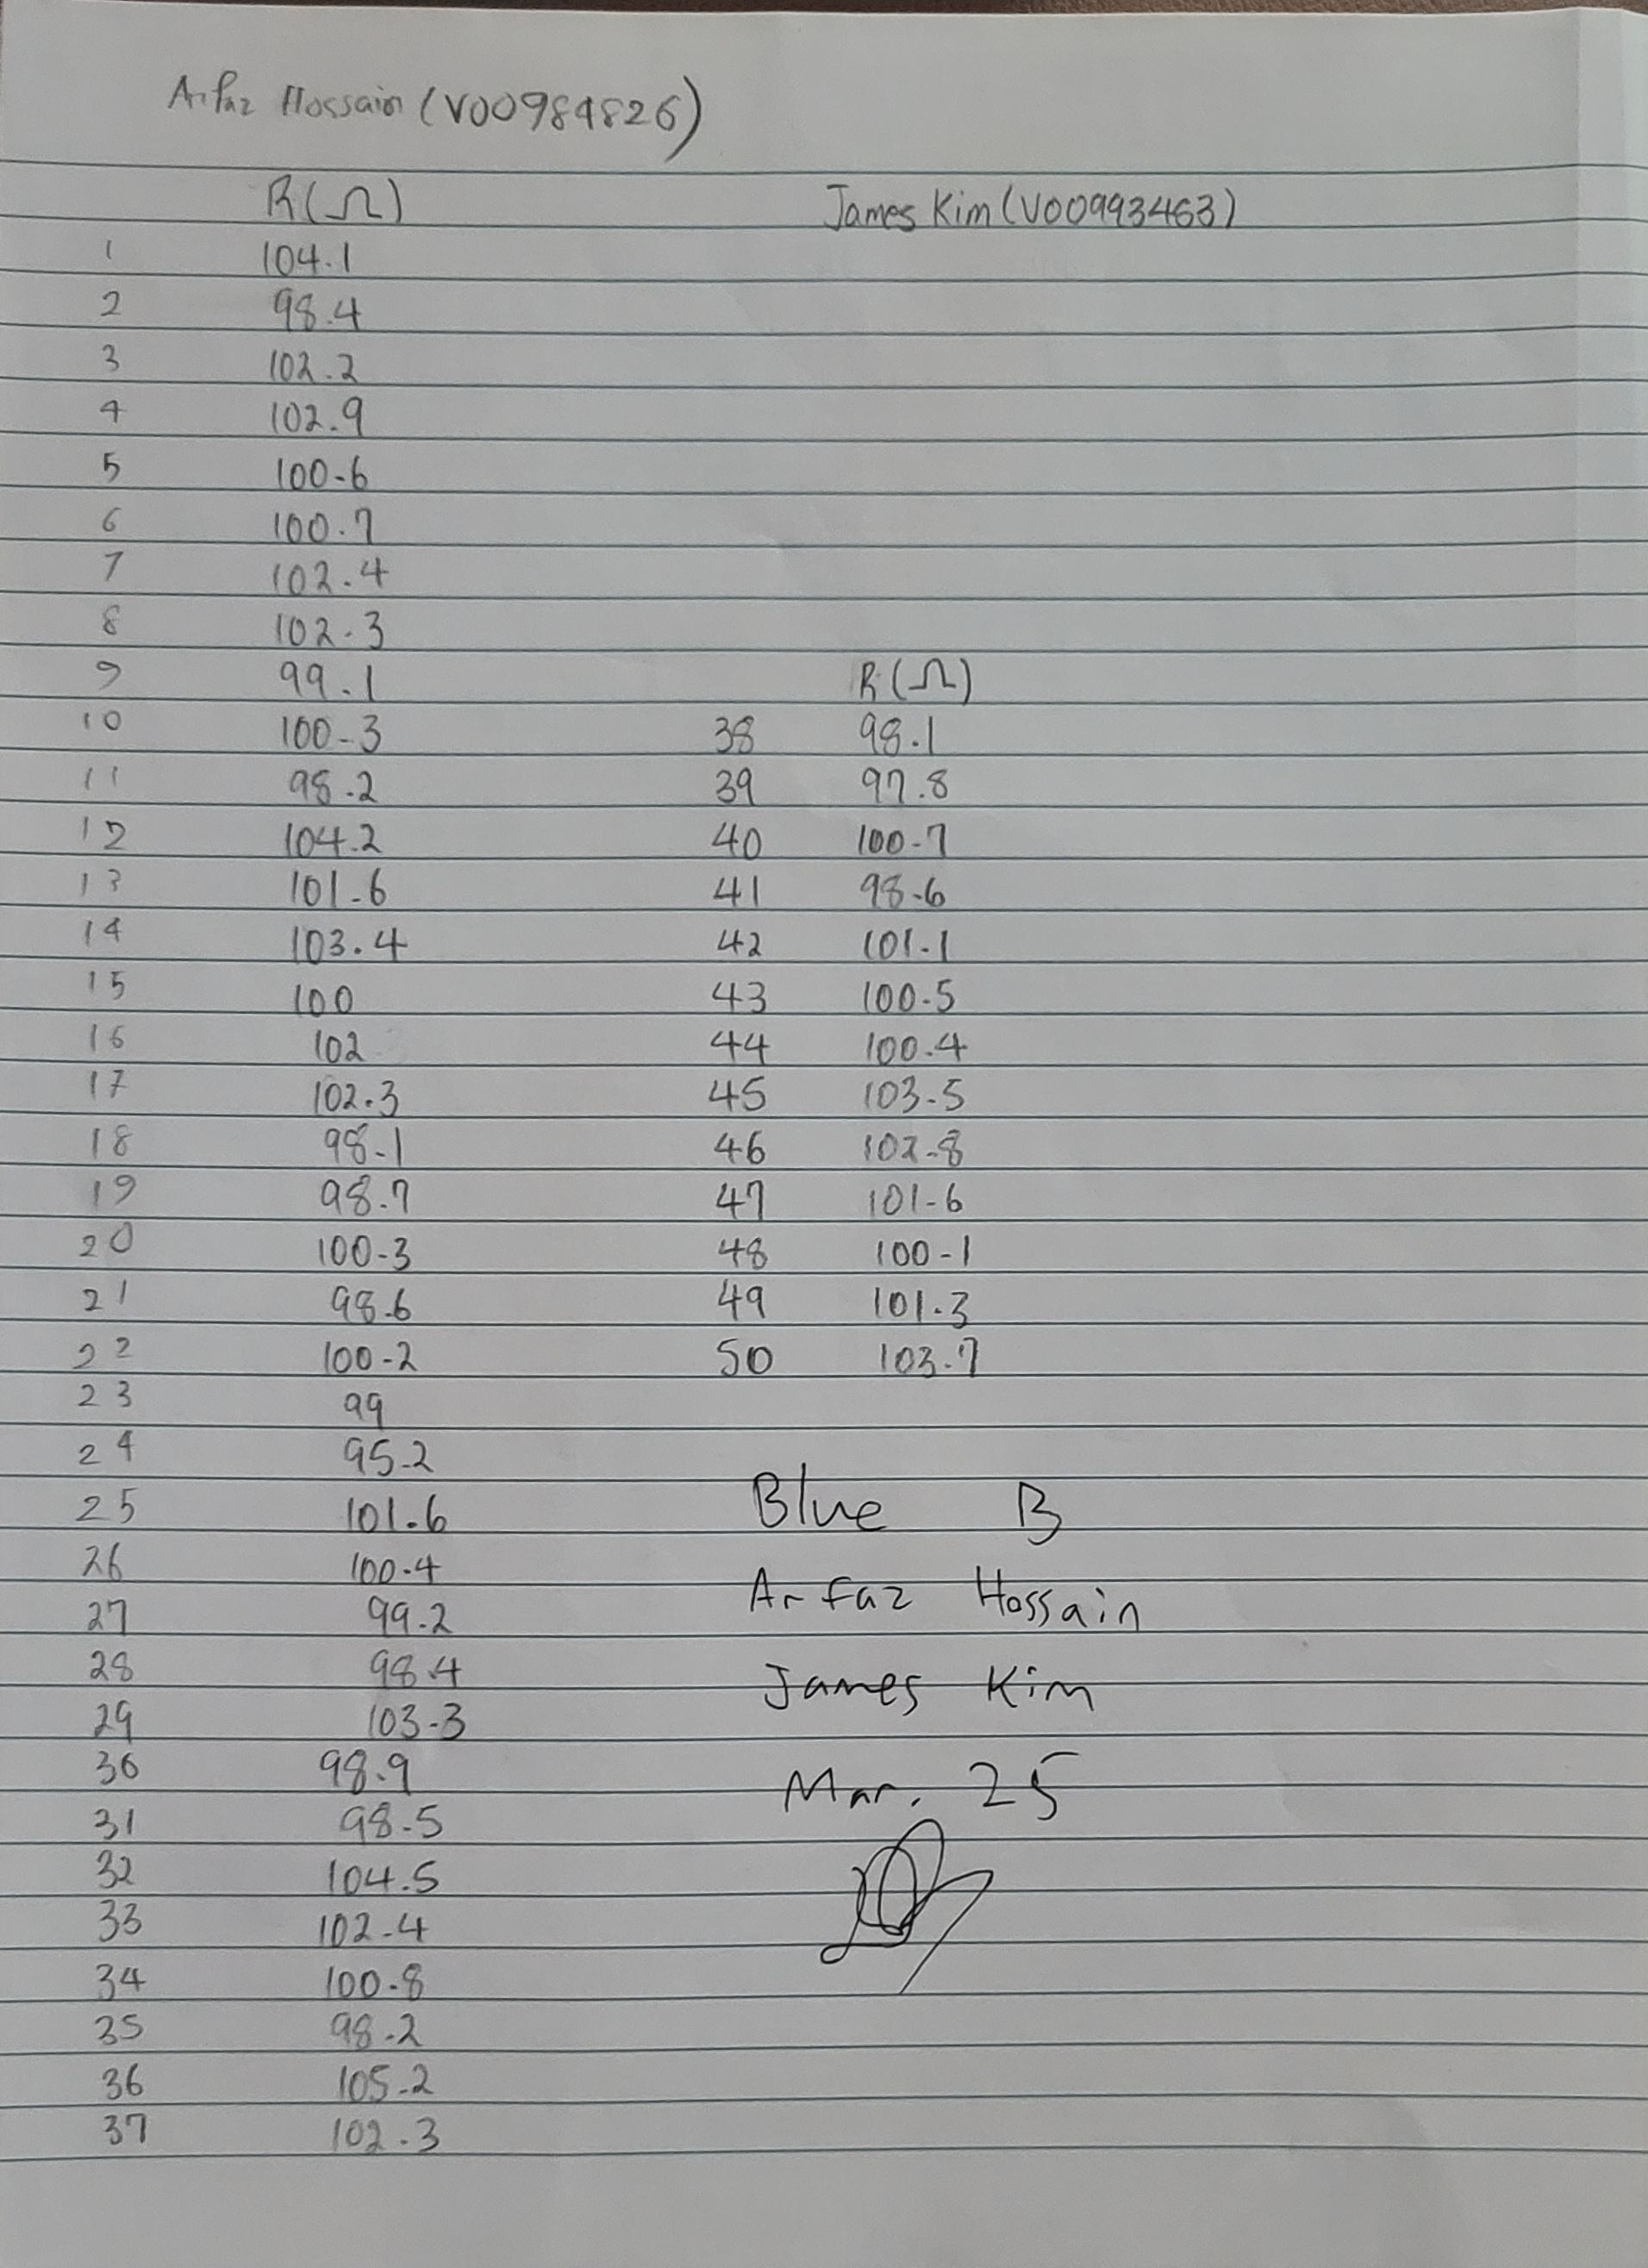 Arfaz Hossain (V00984826)
R(Ω)
James Kim (V00993463)
1 104.1
2 98.4
3 102.2
4 102.9
5 100.6
6 100.7
7 102.4
8 102.3
9 99.1
10 100.3
11 98.2
12 104.2
13 101.6
14 103.4
15 100
16 102
17 102.3
18 98.1
19 98.7
20 100.3
21 98.6
22 100.2
23 99
24 95.2
25 101.6
26 100.4
27 99.2
28 98.4
29 103.3
30 98.9
31 98.5
32 104.5
33 102.4
34 100.8
35 98.2
36 105.2
37 102.3
R(Ω)
38 98.1
39 97.8
40 100.7
41 98.6
42 101.1
43 100.5
44 100.4
45 103.5
46 102.8
47 101.6
48 100.1
49 101.3
50 103.7
Blue B
Arfaz Hossain
James Kim
Mar. 25